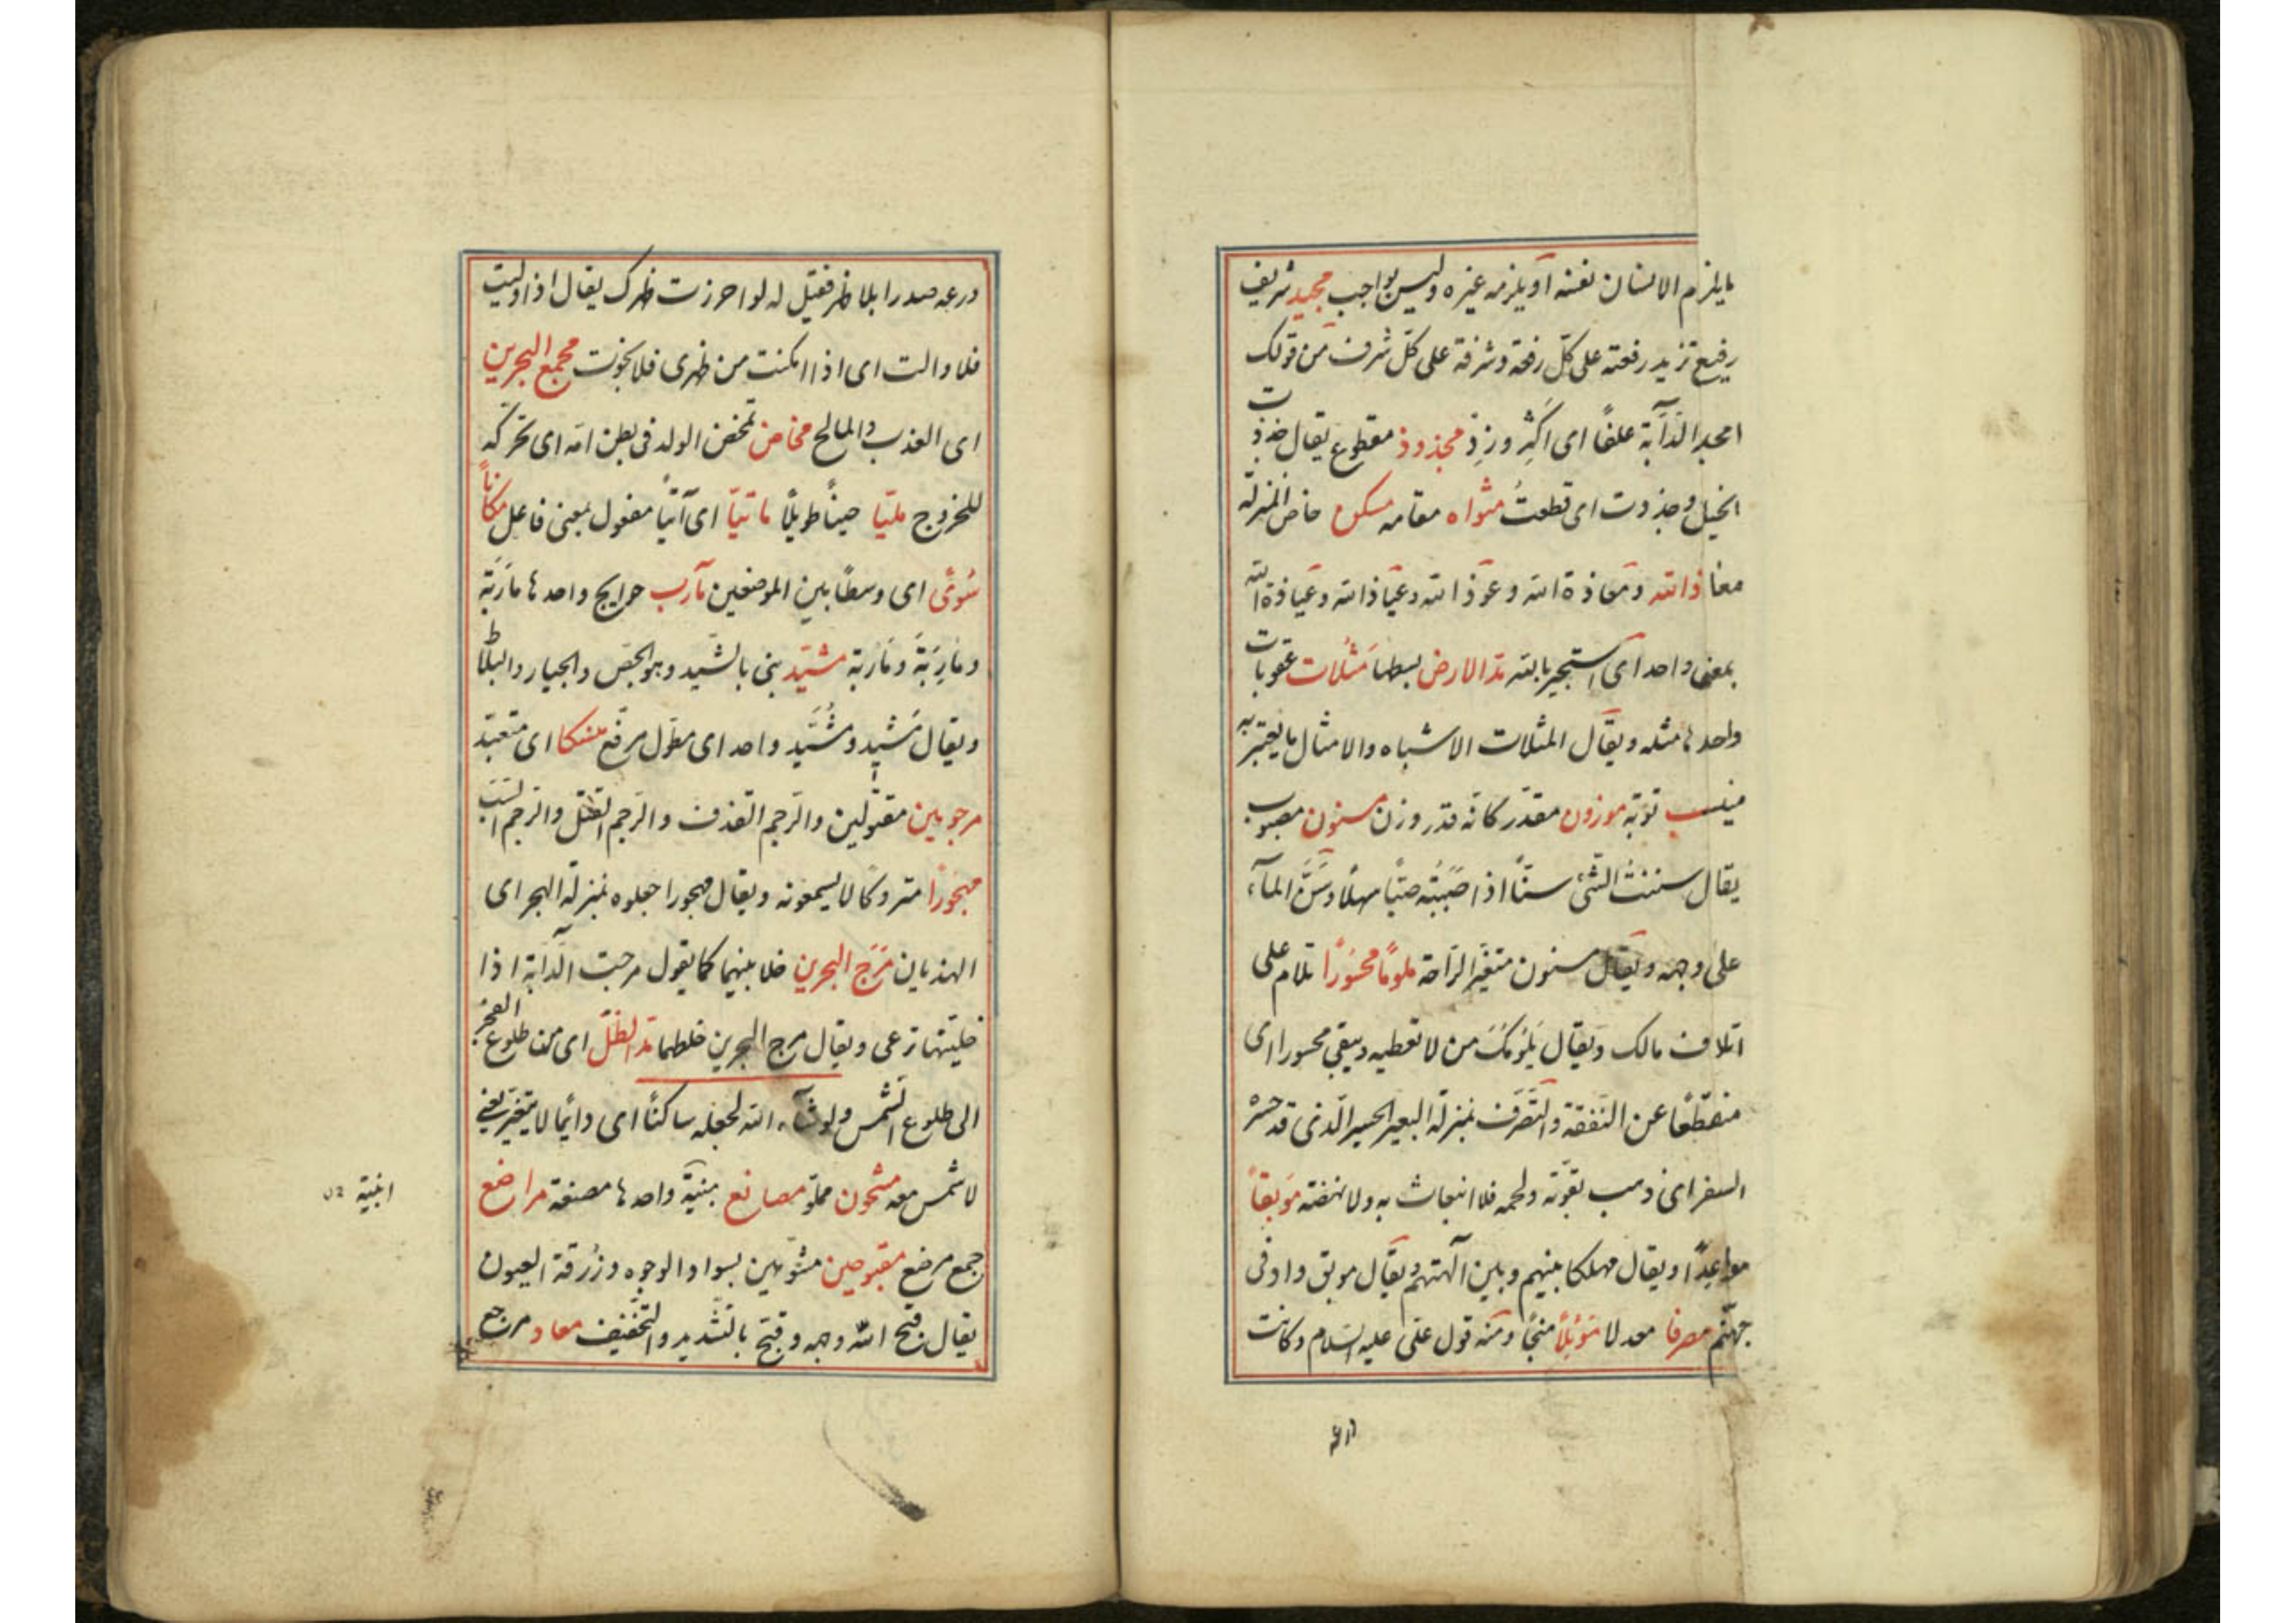 ما يلزم الانسان نفسه او يلزمه غيره وليس بواجب مجيد شريف
رفيع تزيد رفعته على كلّ رفعة وشرفة على كلّ شرف من قولك
امجد الدّآبة علفًا اى اكثِر وزِد مجذوذ مقطوع يقال جذذت
الحبل وجذذت اى قطعتُ مثواه مقامه مسكن خاض المنزلة
معاذ الله ومعاذة الله وعوذ الله وعياذ الله وعياذة الله
بمعنى واحد اى استجير بالله مدّ الارض بسطها مَثُلات عقوبات
واحدها مثله ويقال المثلات الاشباه والامثال ما يعتبر به
منيب توبة موزون مقدّر كانّه قدر وزن مسنون مصبوب
يقال سننت الشّئ سنًّا اذا صَبَبْتَه صبًّا سهلًا وسَنَّ المآء
على وجهه ويقال مسنون متغيّر الرّاحة ملومًا محسُورًا تلام على
اتلاف مالك ويقال يَلُومُكَ من لا تعطيه ويبقى محسورا اى
منقطعًا عن النّفقة والتّصرّف بمنزلة البعير الحسير الّذى قد حسَرَه
السفر اى ذهب بقوّته ولحمه فلا انبعاث به ولا نهضة مَوْبِقاً
مواعِدًا ويقال مهلكا بينهم وبين آلهتهم ويقال موبق واد فى
جهنّم مصرفا معدلا مَوْئِلاً منجًا ومنه قول علىّ عليه السّلام وكانت
درعه
درعه صدرا بلا ظهر فقيل له لو احرزت ظهرك يقال اذا وليت
فلا والت اى اذا امكنت من ظهرى فلا نجوت مجمع البحرين
اى العذب والمالح مخاض تمخض الولد فى بطن امّه اى تحرّكه
للخروج مليّا حينًا طويلًا ماتيّا اى آتيًا مفعول بمعنى فاعل مكاناً
سُوًى اى وسطًا بين الموضعين مآرب حوايج واحدها مارَبَة
ومارِبَة ومارُبة مشيّد بنى بالشّيد وهو الجصّ والجيار والبلاط
ويقال مَشيد ومُشَيّد واحد اى مطوّل مرفّع منسكا اى متعبّد
مرجومين مقتولين والرّجم القذف والرّجم القتل والرّجم السّب
مهجُورًا متروكًا لا يسمعونه ويقال مهجورا جعلوه بمنزلة الهجر اى
الهذيان مَرَج البحرين خلا بينهما كما يقول مرجت الدّآبة اذا
خليتها ترعى ويقال مرج البحرين خلطهما مدّ الظلّ اى من طلوع الفجر
الى طلوع الشّمس ولو شآء الله لجعله ساكنًا اى دايمًا لا يتغيّر يعنى
لا شمس معه مشحون مملوّ مصانع مبنيّة واحدها مصنعة مراضع
ابنية
جمع مرضع مقبوحين مشوّهين بسواد الوجوه وزُرقة العيون
يقال قبح الله وجهه وقبّح بالتشديد والتّخفيف معاد مرجع